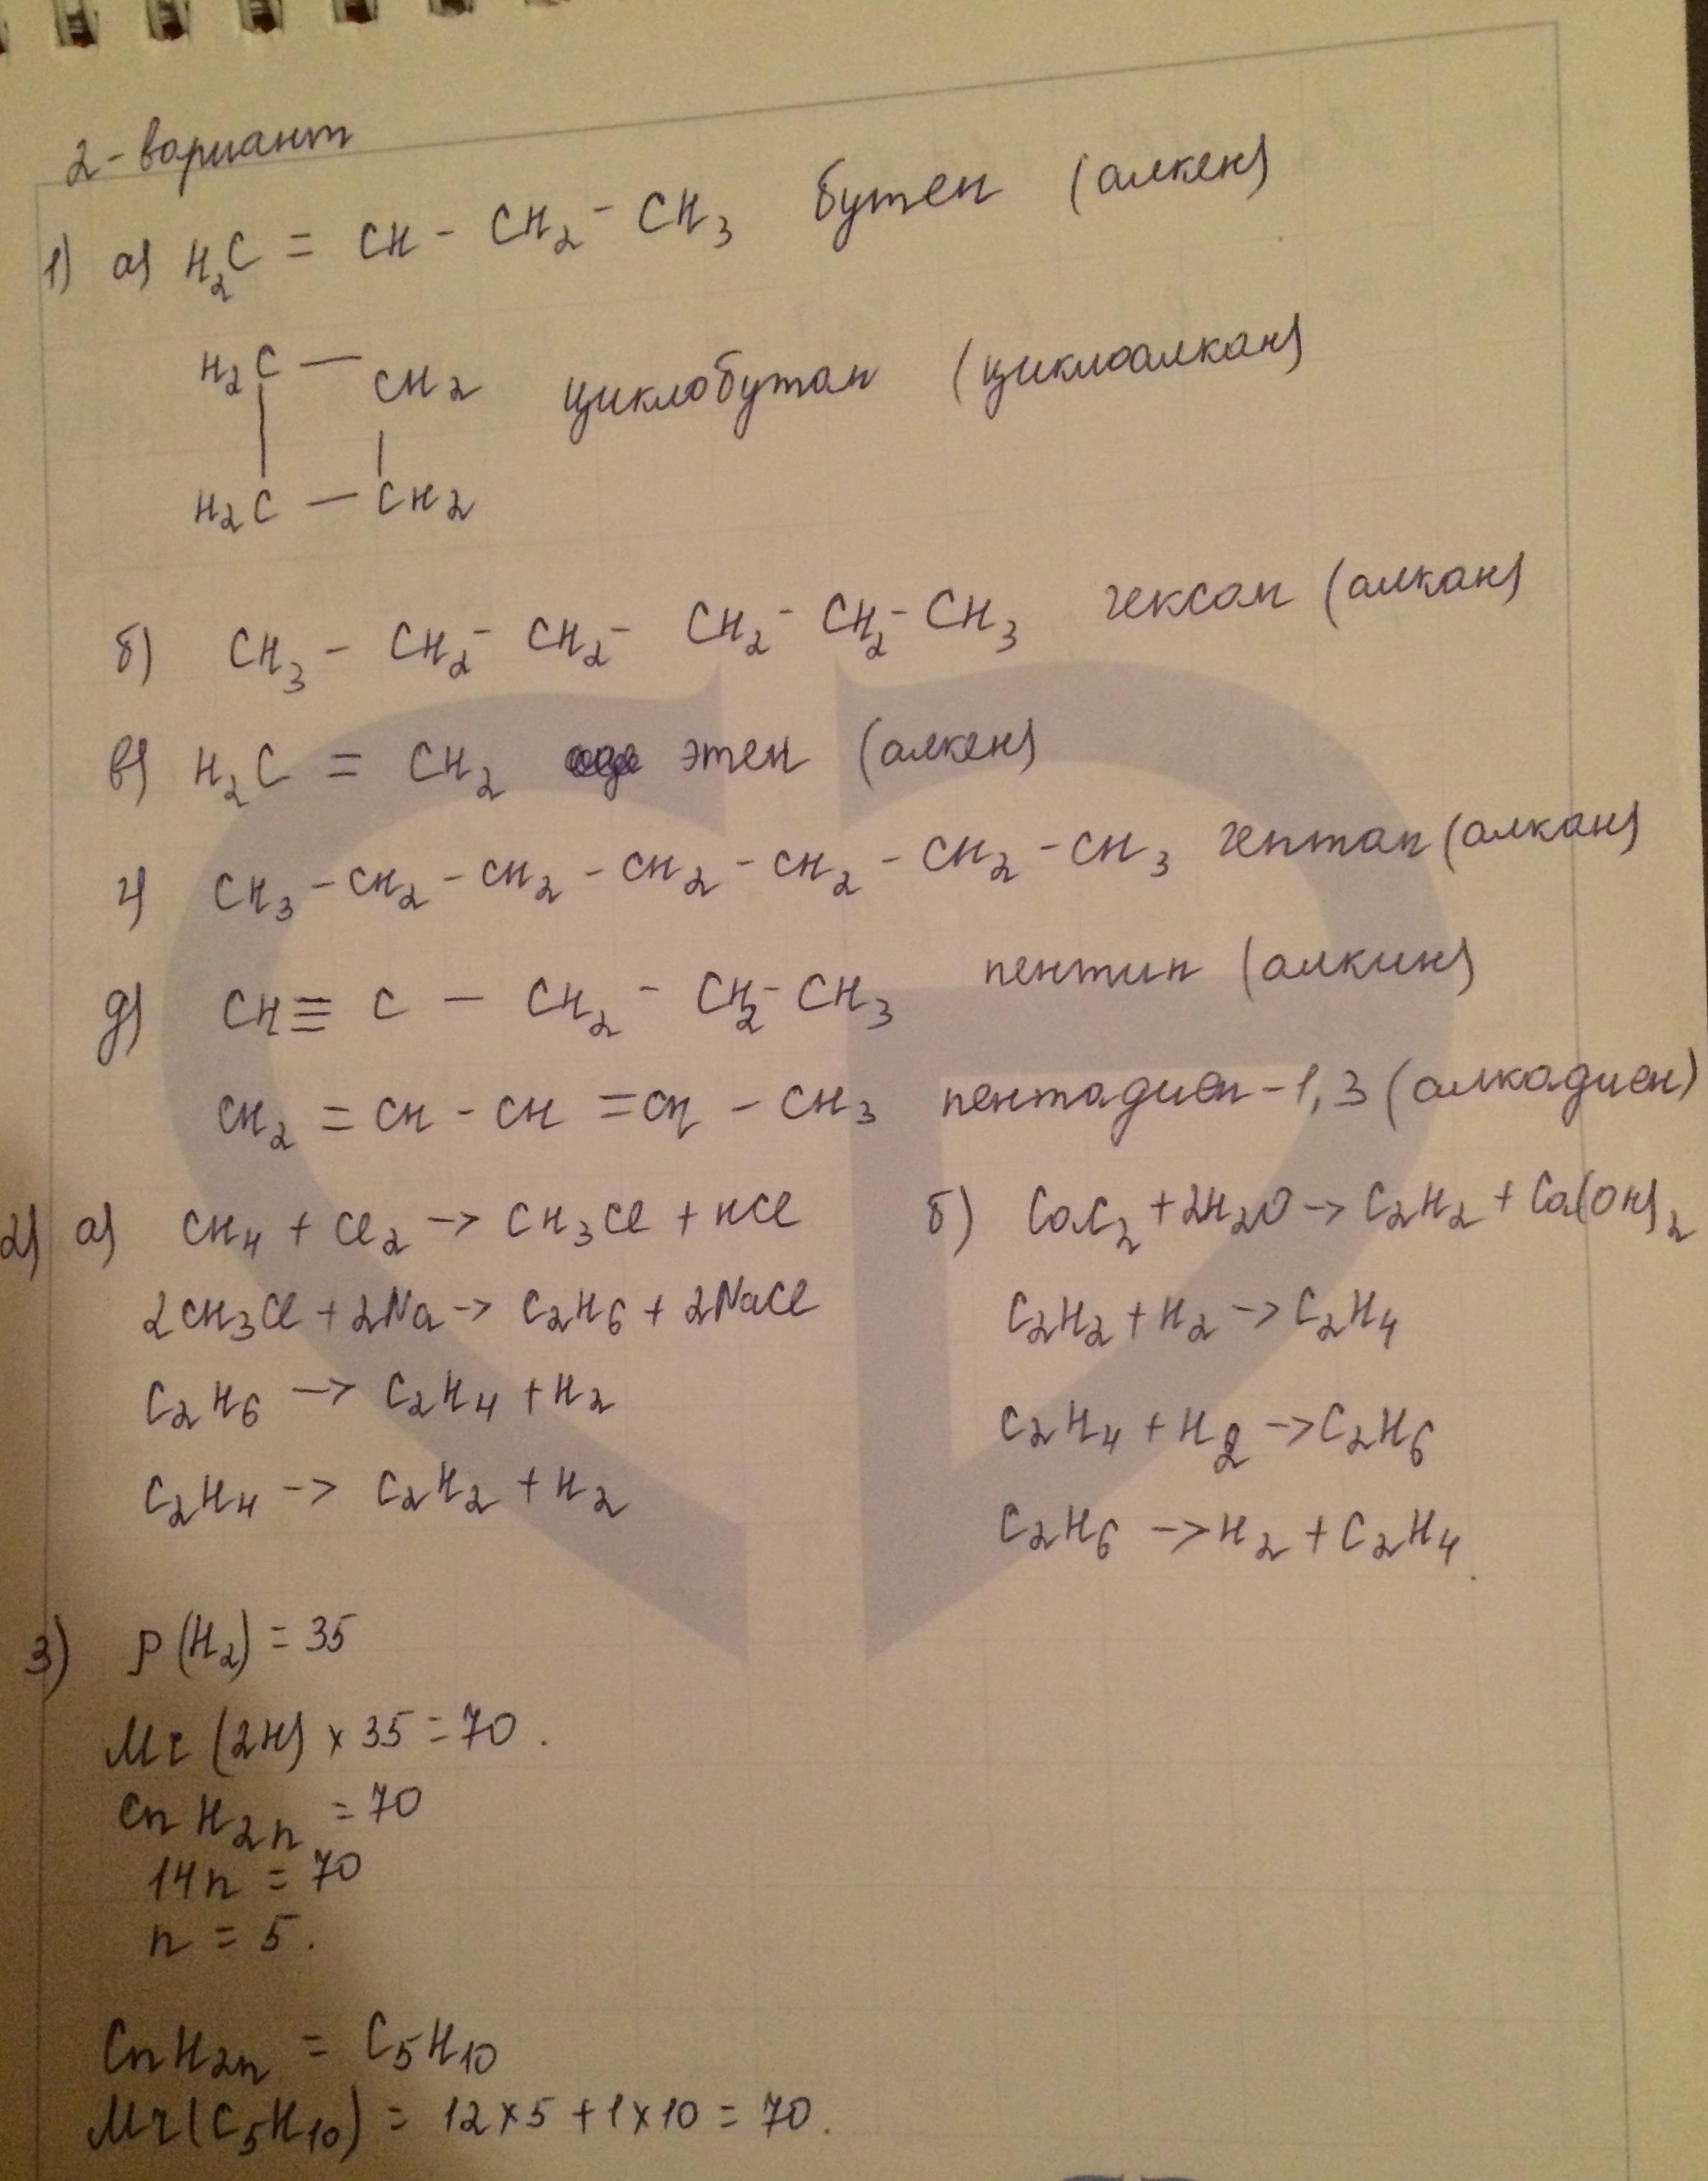 2-вариант
1) а) H₂C = CH - CH₂ - CH₃ бутен (алкен)
H₂C — CH₂ циклобутан (циклоалкан)
| |
H₂C — CH₂
б) CH₃ - CH₂ - CH₂ - CH₂ - CH₂ - CH₃ гексан (алкан)
в) H₂C = CH₂ этен (алкен)
г) CH₃ - CH₂ - CH₂ - CH₂ - CH₂ - CH₂ - CH₃ гептан (алкан)
д) CH ≡ C — CH₂ - CH₂ - CH₃ пентин (алкин)
CH₂ = CH - CH = CH - CH₃ пентадиен-1,3 (алкадиен)
2) а) CH₄ + Cl₂ -> CH₃Cl + HCl
2CH₃Cl + 2Na -> C₂H₆ + 2NaCl
C₂H₆ -> C₂H₄ + H₂
C₂H₄ -> C₂H₂ + H₂
б) CaC₂ + 2H₂O -> C₂H₂ + Ca(OH)₂
C₂H₂ + H₂ -> C₂H₄
C₂H₄ + H₂ -> C₂H₆
C₂H₆ -> H₂ + C₂H₄.
3) ρ(H₂) = 35
Mr (2H) × 35 = 70.
CnH₂n = 70
14n = 70
n = 5.
CnH₂n = C₅H₁₀
Mr(C₅H₁₀) = 12×5 + 1×10 = 70.